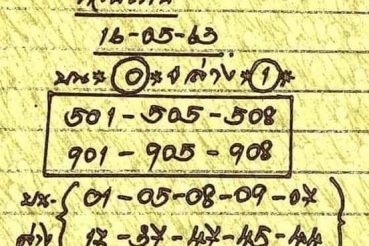 16-05-63
บน * 0 * จ ล่าง * 1 *
501 - 505 - 508
901 - 905 - 908
บน - 01 - 05 - 08 - 09 - 07
ล่าง 17 - 37 - 47 - 45 - 44